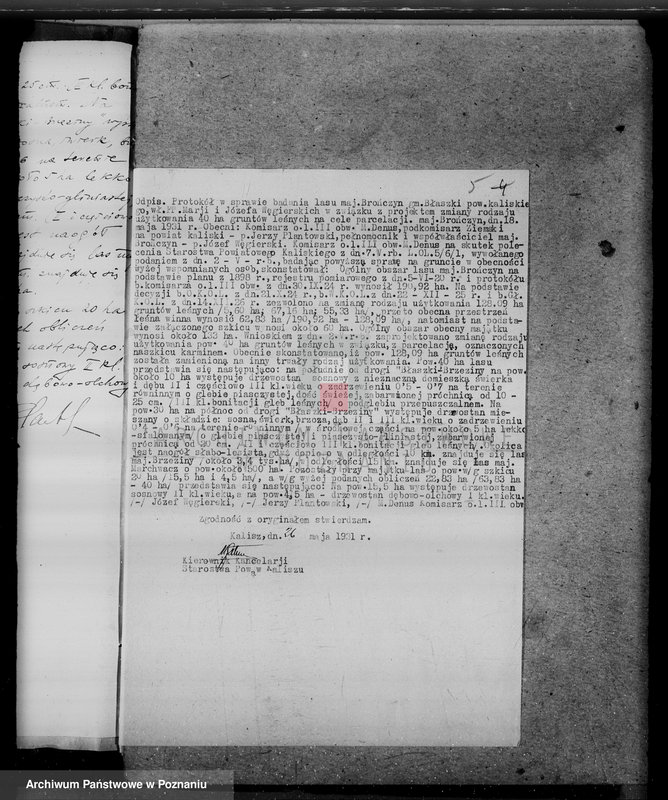 5 4
Odpis. Protokół w sprawie badania lasu maj.Brończyn gm.Błaszki pow.kaliskie
go, wł.PP.Marji i Józefa Węgierskich w związku z projektem zmiany rodzaju
użytkowania 40 ha gruntów leśnych na cele parcelacji. maj.Brończyn,dn.18.
maja 1931 r. Obecni: Komisarz o.l.III obw.M.Denus,podkomisarz Ziemski
na powiat kaliski - p.Jerzy Plantowski,pełnomocnik i współwłaściciel maj.
Brończyn - p.Józef Węgierski. Komisarz o.l.III obw.M.Denus na skutek pole-
cenia Starostwa Powiatowego Kaliskiego z dn.7.V.rb. L.OL.5/6/1, wywołanego
podaniem z dn. 2 - V - r.b., badając powyższą sprawę na gruncie w obecności
wyżej wspomnianych osób, skonstatował: Ogólny obszar lasu maj.Brończyn na
podstawie planu z 1898 r., rejestru pomiarowego z dn.5-VI-20 r. i protokółu
b.komisarza o.l.III obw. z dn.30.IX.24 r. wynosił 190,92 ha. Na podstawie
decyzji b.O.K.O.L. z dn.21.X.24 r., b.W.K.O.L. z dn.22 - XII - 25 r. i b.Gł.
K.O.L. z dn.14.II.26 r. zezwolono na zmianę rodzaju użytkowania 128,09 ha
gruntów leśnych /5,60 ha; 67,16 ha; 55,33 ha/, przeto obecna przestrzeń
leśna winna wynosić 62,83 ha /190,92 ha - 128,09 ha/, natomiast na podsta-
wie załączonego szkicu wynosi około 60 ha. Ogólny obszar obecny majątku
wynosi około 133 ha. Wnioskiem z dn. 2.V.r.b. zaprojektowano zmianę rodzaju
użytkowania pow. 40 ha gruntów leśnych w związku z parcelacją, oznaczonych
naszkicu karminem. Obecnie skonstatowano,iż pow. 128,09 ha gruntów leśnych
została zamieniona na inny trwały rodzaj użytkowania. Pow.40 ha lasu
przedstawia się następująco: na południe od drogi "Błaszki-Brzeziny na pow.
około 10 ha występuje drzewostan sosnowy z nieznaczną domieszką świerka
i dębu II i częściowo III kl.wieku o zadrzewieniu 0'5 - 0'7 na terenie
równinnym o glebie piaszczystej,dość świeżej,zabarwionej próchnicą od 10 -
25 cm. /III kl.bonitacji gleb leśnych/ o podglebiu przepuszczalnem. Na
pow.30 ha na północ od drogi "Błaszki-Brzeziny" występuje drzewostan mie-
szany o składzie: sosna,świerk,brzoza,dąb II i III kl.wieku o zadrzewieniu
0'4 - 0'6 na terenie równinnym /w środkowej części na pow.około 5 ha lekko
-sfalowanym/o glebie piaszczystej i piaszczysto-gliniastej,zabarwionej
próchnicą do 20 cm. /II i częściowo III kl.bonitacji gleb leśnych/.Okolica
jest naogół słabo-lesista,gdyż dopiero w odległości 10 km. znajduje się las
maj.Brzeziny /około 3,4 tys.ha/,w odległości 15 km. znajduje się las maj.
Marchwacz o pow.około 500 ha. Pozostały przy majątku las o pow.w/g szkicu
20 ha /15,5 ha i 4,5 ha/, a w/g wyżej podanych obliczeń 22,83 ha /63,83 ha
- 40 ha/ przedstawia się następująco: Na pow.15,5 ha występuje drzewostan
sosnowy II kl.wieku,a na pow.4,5 ha - drzewostan dębowo-olchowy I kl.wieku.
/-/ Józef Węgierski, /-/ Jerzy Plantowski, /-/ M.Denus Komisarz o.l.III obw
Zgodność z oryginałem stwierdzam.
Kalisz,dn. 26 maja 1931 r.
Kierownik Kancelarji
Starostwa Pow. w Kaliszu
Archiwum Państwowe w Poznaniu